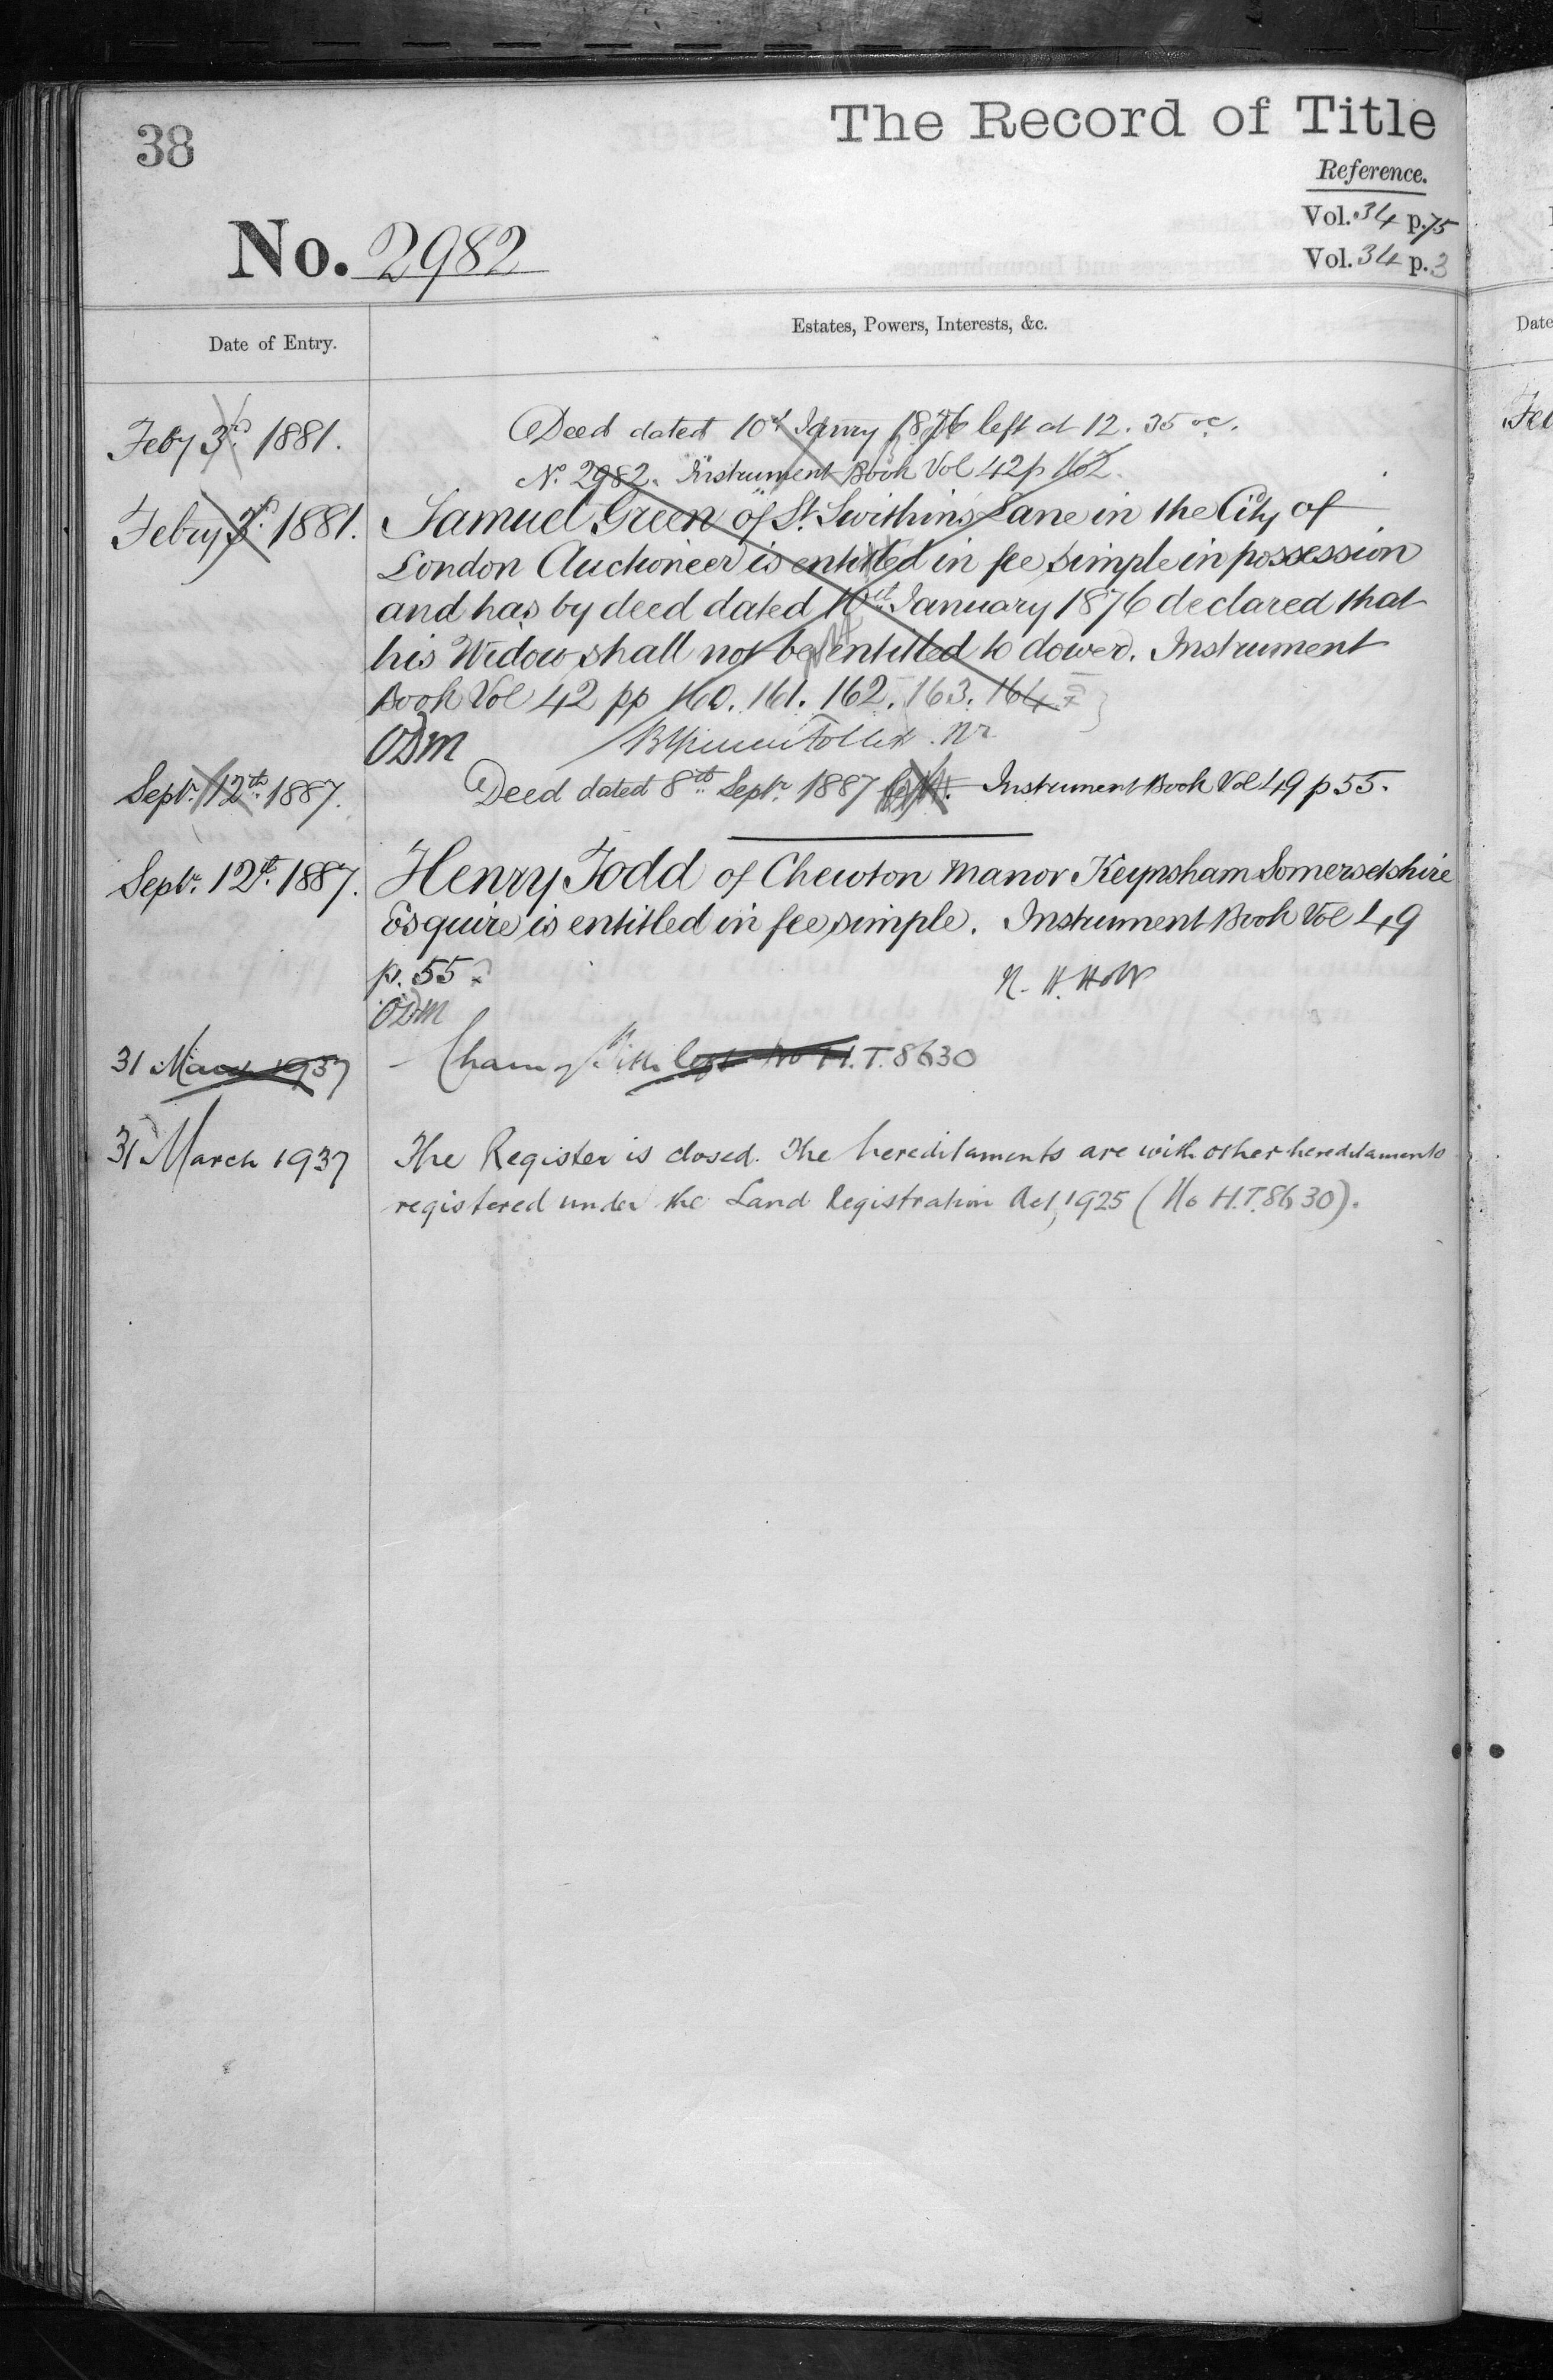 38
The Record of Title
Reference.
Vol. 34 p. 75
Vol. 34 p. 3
No. 2982
Date of Entry.
Estates, Powers, Interests, &c.
Feby 3d. 1881. Deed dated 10th Janry 1876 left at 12.35
No. 2982. Instrument Book Vol 42 p 162.
Febry 3d. 1881. Samuel Green of St. Swithin's Lane in the City of
London Auctioneer is entitled in fee simple in possession
and has by deed dated 10th January 1876 declared that
his Widow shall not be entitled to dower. Instrument
Book Vol 42 pp 160. 161. 162. 163. 164
ODM
Septr. 12th. 1887. Deed dated 8th Septr. 1887 left. Instrument Book Vol 49 p 55.
Septr. 12th. 1887. Henry Todd of Chewton Manor Keynsham Somersetshire
Esquire is entitled in fee simple. Instrument Book Vol 49
p. 55 N. H. Holt
ODM
31 March 1937 left No H.T. 8630
31 March 1937 The Register is closed. The hereditaments are with other hereditaments
registered under the Land Registration Act, 1925 (No H.T. 8630).
Date